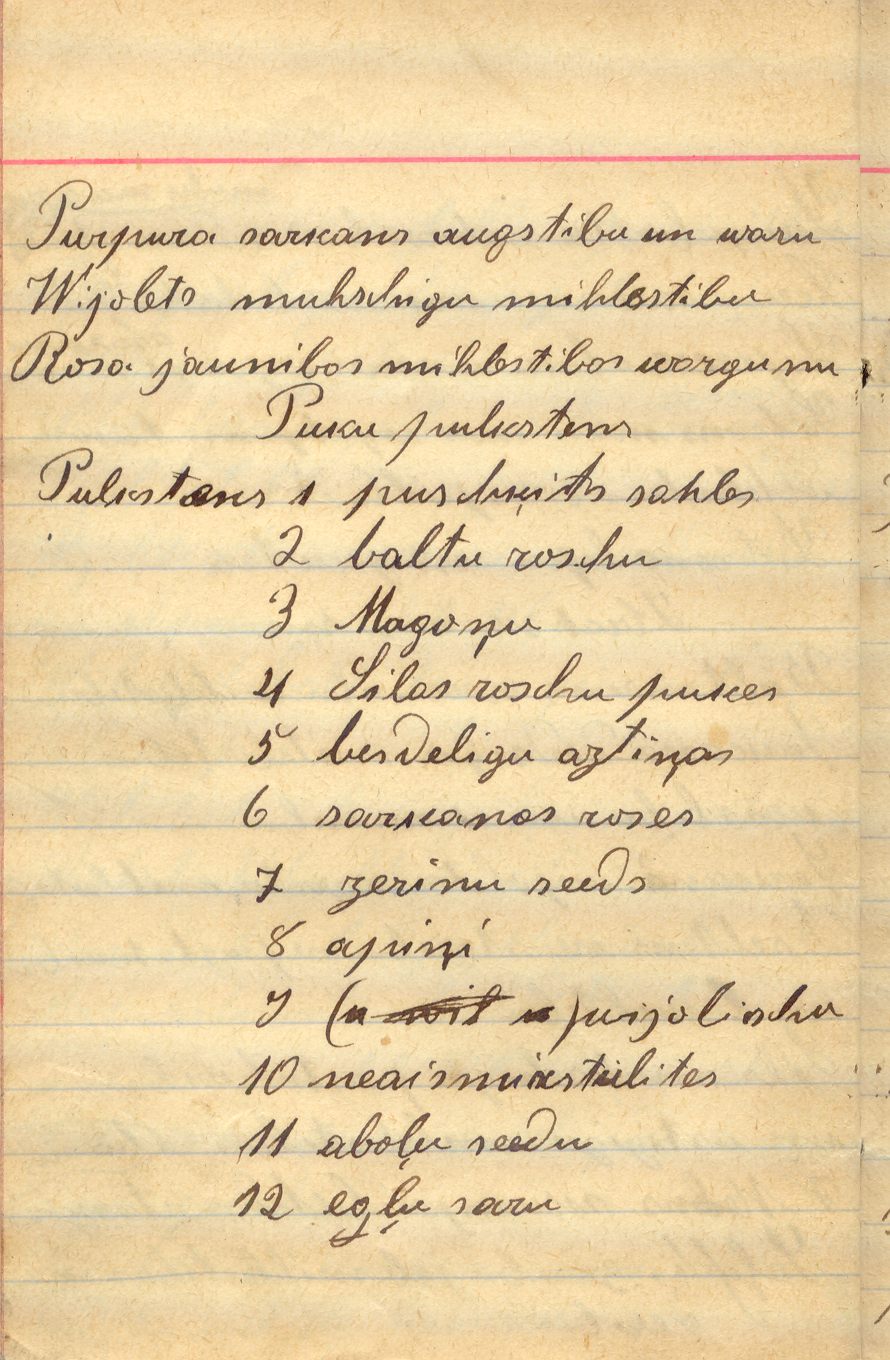 Purpura sarkans augstibu un waru
Wijolets muhschigu mihlestibu
Rosa jaunibas mihlestibas wargumu
Puku pulkstens
Pulkstens 1 puschkits sahles
2 baltu roschu
3 Magoņu
4 Silas roschu pukes
5 besdeligu aztiņas
6 sarkanas roses
7 zerinu seeds
8 apiņi
9 (u wil u) wijolischu
10 neaismirstulites
11 aboļu seedu
12 egļu saru